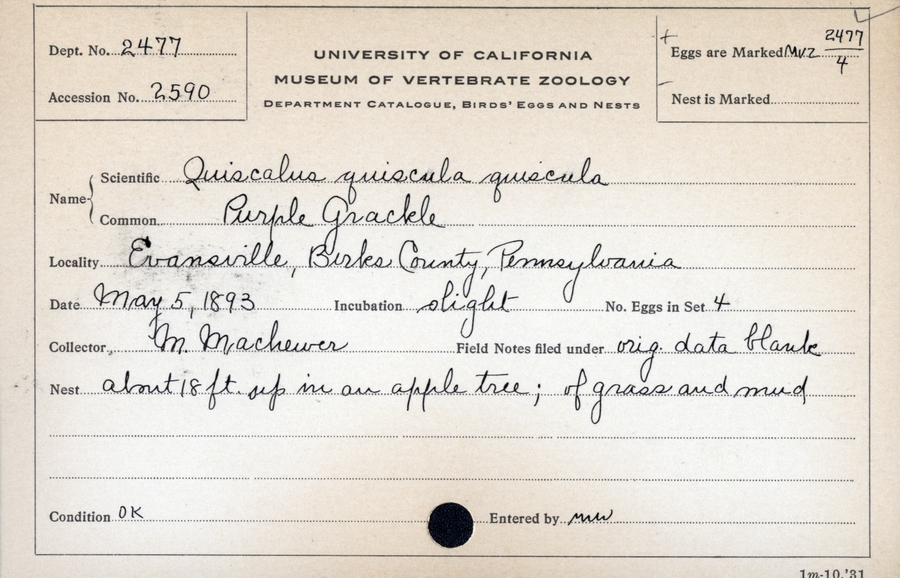 Dept. No. 2477
Accession No. 2590
UNIVERSITY OF CALIFORNIA
MUSEUM OF VERTEBRATE ZOOLOGY
DEPARTMENT CATALOGUE, BIRDS' EGGS AND NESTS
Eggs are Marked MVZ 2477/4
Nest is Marked
Name Scientific Quiscalus quiscula quiscula
Common Purple Grackle
Locality Evansville, Birks County, Pennsylvania
Date May 5, 1893 Incubation slight No. Eggs in Set 4
Collector M. Machewer Field Notes filed under orig. data blank
Nest about 18 ft. up in an apple tree; of grass and mud
Condition OK Entered by mw
1m-10,'31